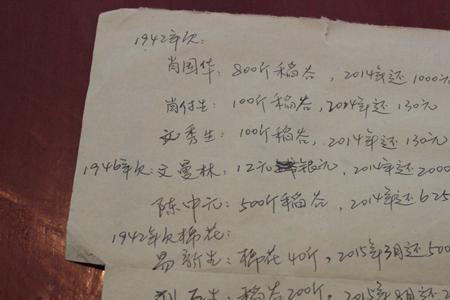 1942年欠:
肖国华: 800斤稻谷, 2014年还1000元
肖付生: 100斤稻谷, 2014年还130元
文秀生: 100斤稻谷, 2014年还130元
1946年欠: 文曼林, 12元银元, 2014年还2000
陈中元: 500斤稻谷, 2014年还625
1942年欠棉花:
易新生: 棉花40斤, 2015年3月还500
稻谷200斤, 2015年8月还